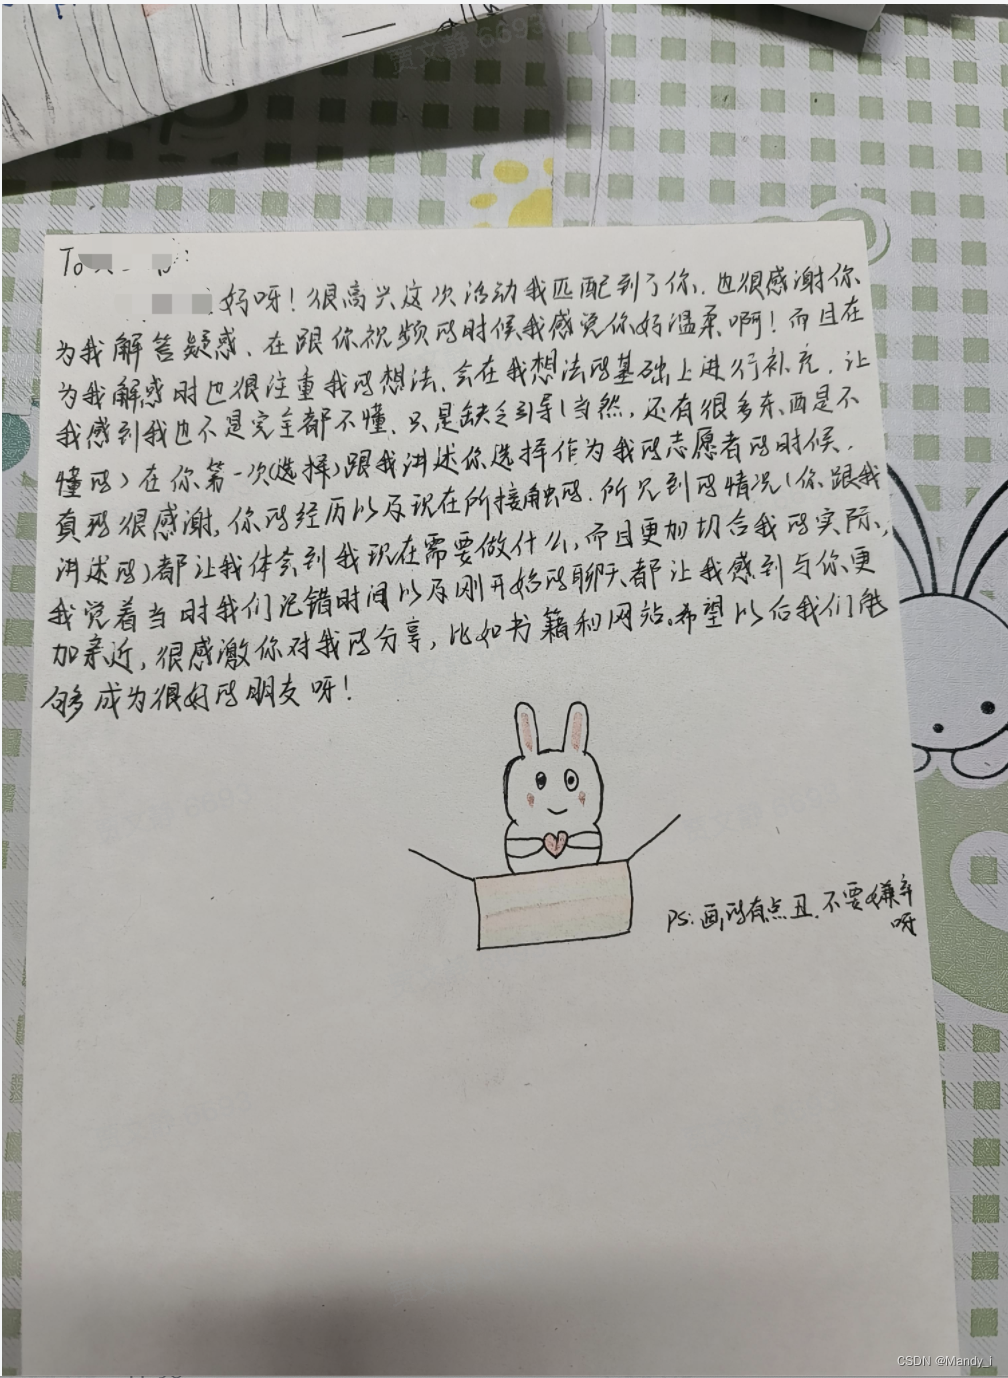 To
好呀！很高兴这次活动我匹配到了你，也很感谢你
为我解答疑惑、在跟你视频的时候我感觉你好温柔啊！而且在
为我解惑时也很注重我的想法、会在我想法的基础上进行补充，让
我感到我也不是完全都不懂、只是缺乏引导（当然，还有很多东西是不
懂的）在你第一次（选择）跟我讲述你选择作为我的志愿者的时候，
真的很感谢，你的经历以及现在所接触的、所见到的情况（你跟我
讲述的）都让我体会到我现在需要做什么，而且更加切合我的实际，
我觉着当时我们记错时间以及刚开始的聊天都让我感到与你更
加亲近，很感激你对我的分享，比如书籍和网站。希望以后我们能
够成为很好的朋友呀！
PS：画的有点丑，不要嫌弃
呀
CSDN @Mandy_i